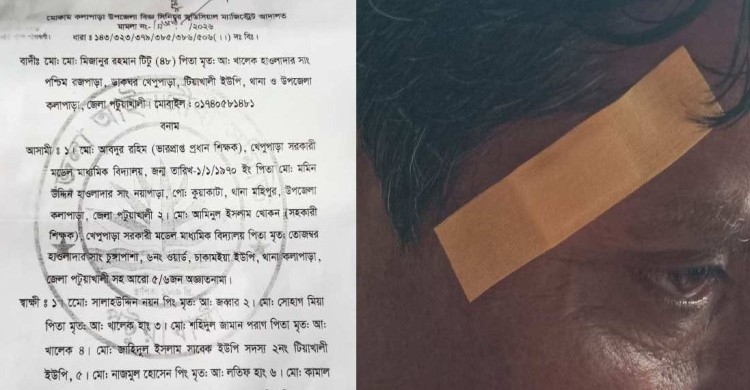 মোকাম কলাপাড়া উপজেলা বিজ্ঞ সিনিয়র জুডিসিয়াল ম্যাজিস্ট্রেট আদালত
মামলা নং- /২০২৬
ধারা ঃ ১৪৩/৩২৩/৩৭৯/৩৮৫/৩৮৬/৫০৬(।।) দঃ বিঃ।
বাদীঃ মো: মো: মিজানুর রহমান টিটু (৪৮) পিতা মৃত: আ: খালেক হাওলাদার সাং
পশ্চিম রজপাড়া, ডাকঘর খেপুপাড়া, টিয়াখালী ইউপি, থানা ও উপজেলা
কলাপাড়া, জেলা পটুয়াখালী। মোবাইল : ০১৭৪০৫৮১৪৮১
বনাম
আসামী ঃ ১। মো: আবদুর রহিম (ভারপ্রাপ্ত প্রধান শিক্ষক), খেপুপাড়া সরকারী
মডেল মাধ্যমিক বিদ্যালয়, জন্ম তারিখ-১/১/১৯৭০ ইং পিতা মো: মমিন
উদ্দিন হাওলাদার সাং নয়াপাড়া, পো: কুয়াকাটা, থানা মহিপুর, উপজেলা
কলাপাড়া, জেলা পটুয়াখালী ২। মো: আমিনুল ইসলাম খোকন (সহকারী
শিক্ষক), খেপুপাড়া সরকারী মডেল মাধ্যমিক বিদ্যালয় পিতা মৃত: তোজম্বর
হাওলাদার সাং চুঙ্গাপাশা, ৬নং ওয়ার্ড, চাকামইয়া ইউপি, থানা কলাপাড়া,
জেলা পটুয়াখালী সহ আরো ৫/৬জন অজ্ঞাতনামা।
স্বাক্ষী ঃ ১। মো: সালাহউদ্দিন নয়ন পিং মৃত: আ: জব্বার ২। মো: সোহাগ মিয়া
পিতা মৃত: আ: খালেক হাং ৩। মো: শহিদুল জামান পরাণ পিতা মৃত: আ:
খালেক ৪। মো: জাহিদুল ইসলাম সাবেক ইউপি সদস্য ২নং টিয়াখালী
ইউপি, ৫। মো: নাজমুল হোসেন পিং মৃত: আ: লতিফ হাং ৬। মো: কামাল